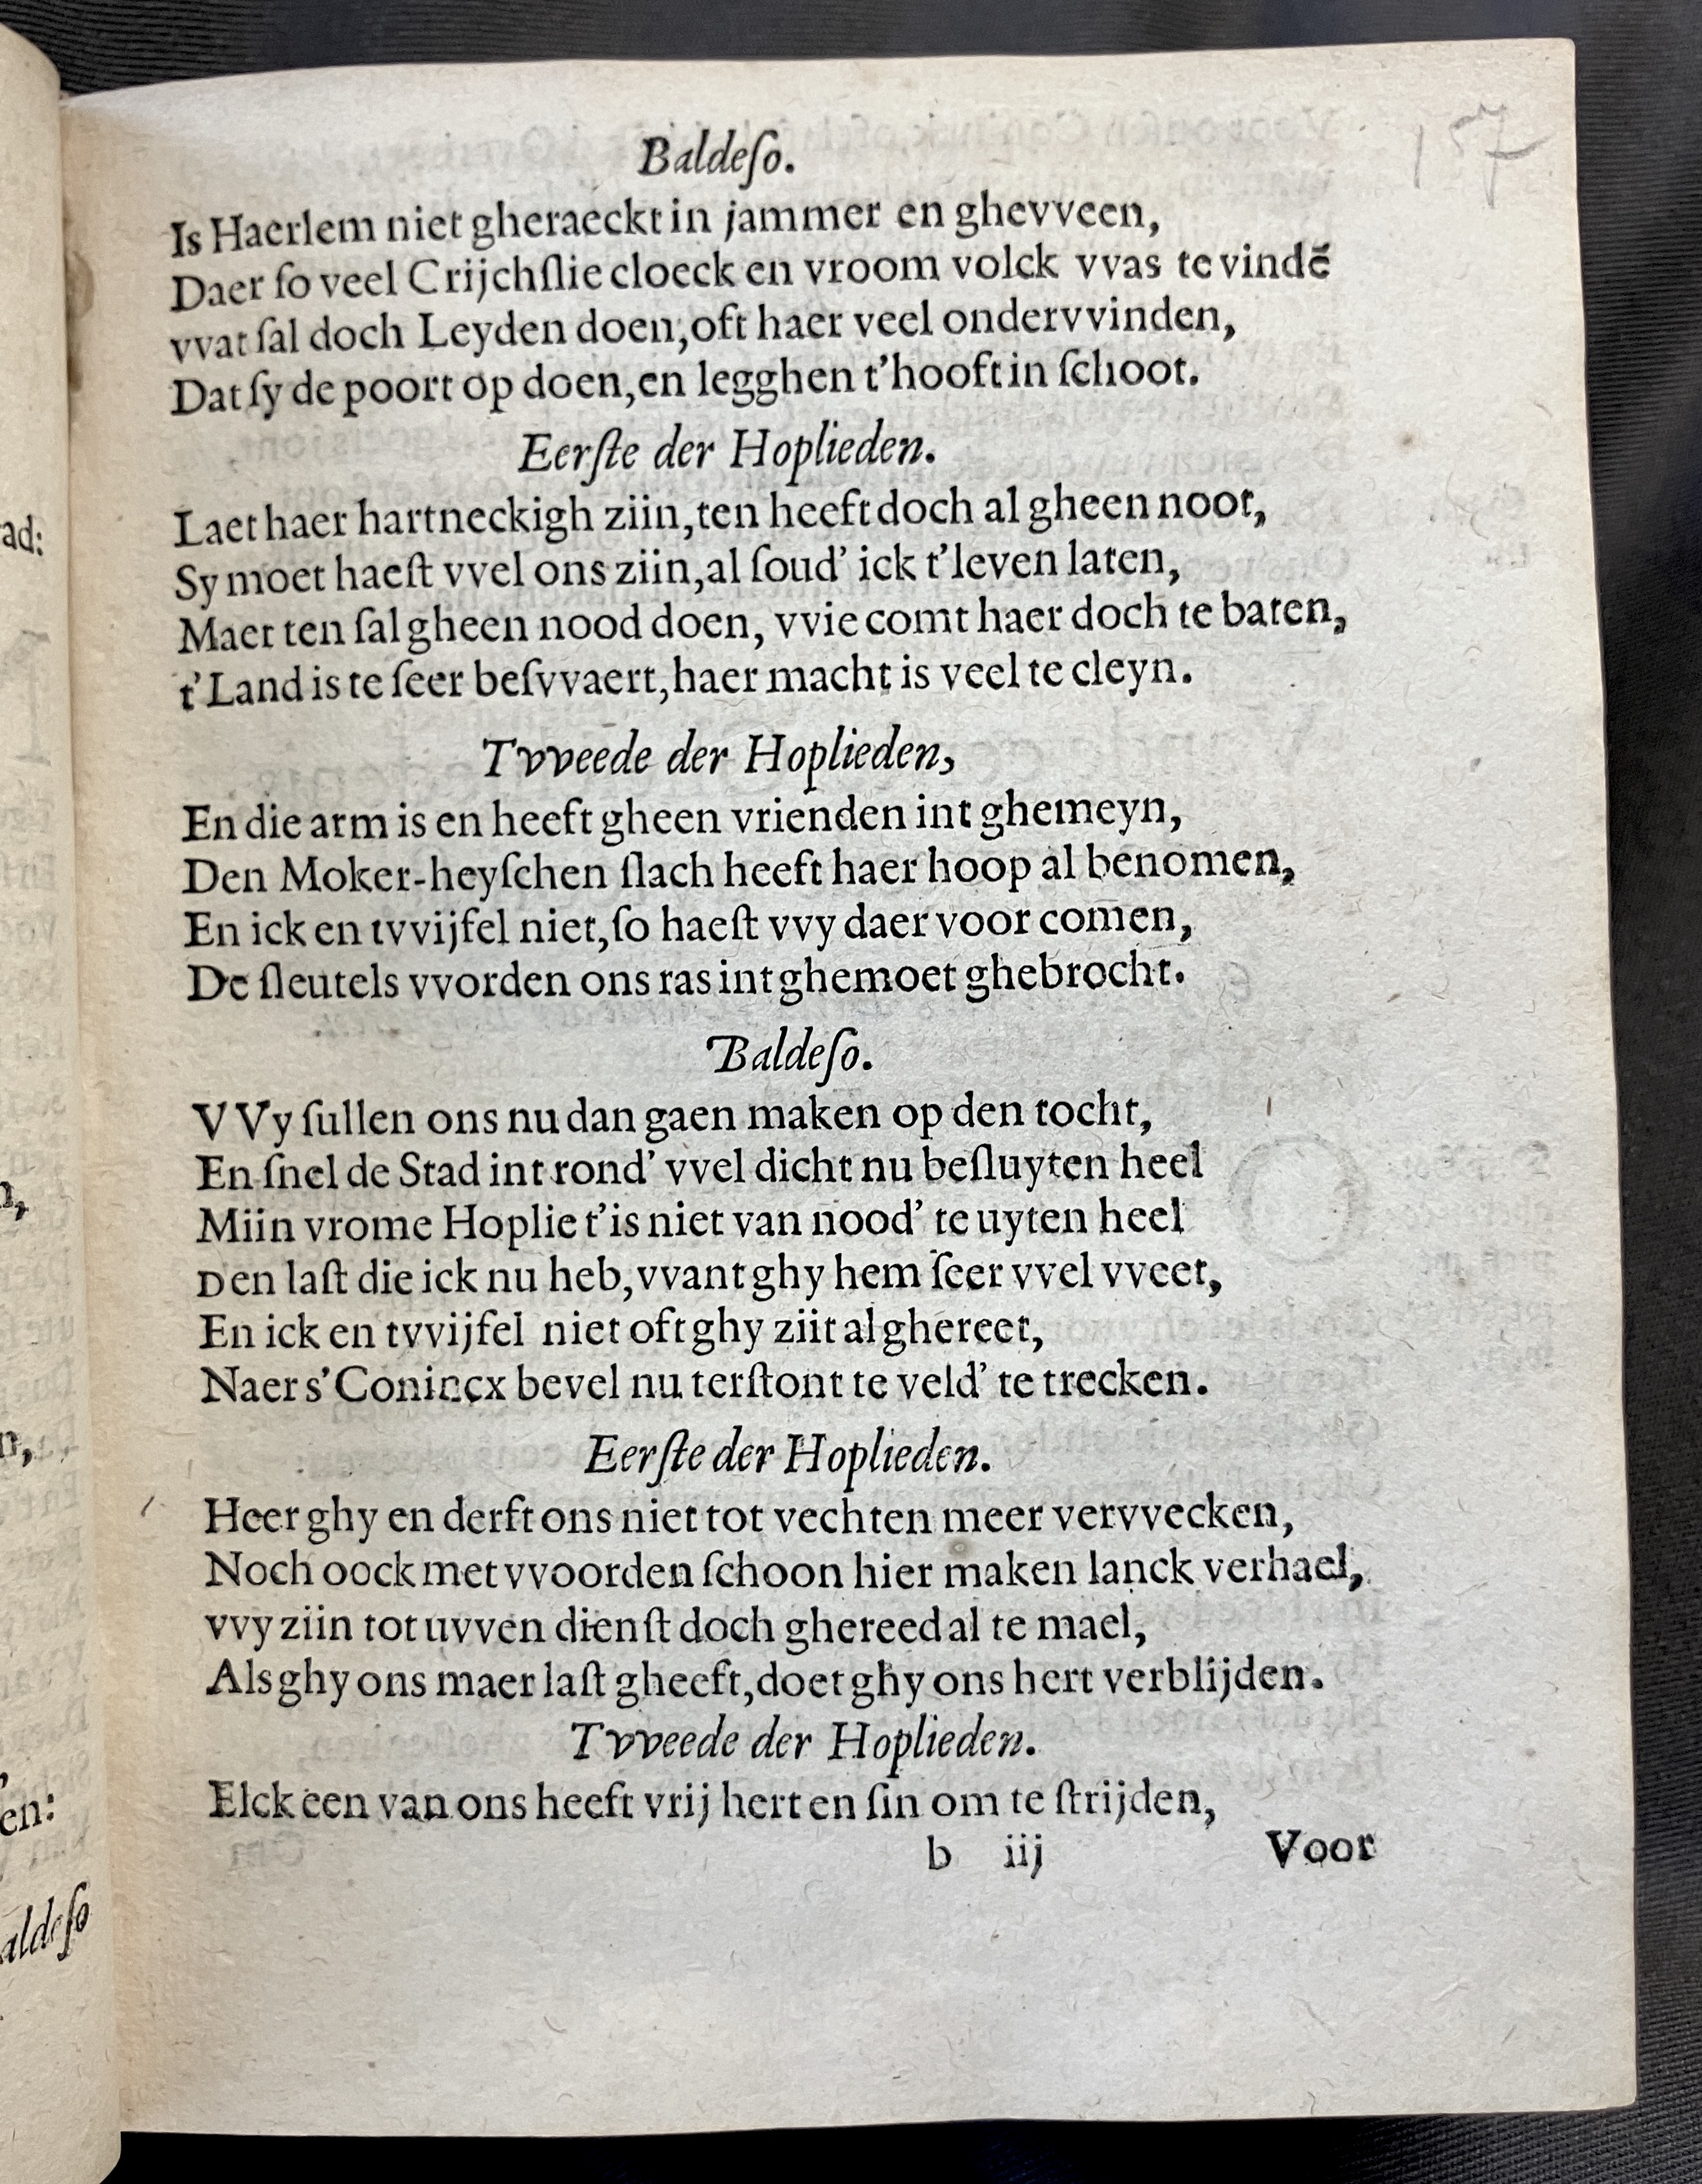 157
Baldeſo.
Is Haerlem niet gheraeckt in jammer en ghevveen,
Daer ſo veel Crijchſlie cloeck en vroom volck vvas te vindē
vvat ſal doch Leyden doen, oft haer veel ondervvinden,
Dat ſy de poort op doen, en legghen t'hooft in ſchoot.
Eerſte der Hoplieden.
Laet haer hartneckigh ziin, ten heeft doch al gheen noot,
Sy moet haeſt vvel ons ziin, al ſoud' ick t'leven laten,
Maer ten ſal gheen nood doen, vvie comt haer doch te baten,
t'Land is te ſeer beſvvaert, haer macht is veel te cleyn.
Tvveede der Hoplieden,
En die arm is en heeft gheen vrienden int ghemeyn,
Den Moker-heyſchen ſlach heeft haer hoop al benomen,
En ick en tvvijfel niet, ſo haeſt vvy daer voor comen,
De ſleutels vvorden ons ras int ghemoet ghebrocht.
Baldeſo.
VVy ſullen ons nu dan gaen maken op den tocht,
En ſnel de Stad int rond' vvel dicht nu beſluyten heel
Miin vrome Hoplie t'is niet van nood' te uyten heel
Den laſt die ick nu heb, vvant ghy hem ſeer vvel vveet,
En ick en tvvijfel niet oft ghy ziit al ghereet,
Naer s'Conincx bevel nu terſtont te veld' te trecken.
Eerſte der Hoplieden.
Heer ghy en derft ons niet tot vechten meer vervvecken,
Noch oock met vvoorden ſchoon hier maken lanck verhael,
vvy ziin tot uvven dienſt doch ghereed al te mael,
Als ghy ons maer laſt gheeft, doet ghy ons hert verblijden.
Tvveede der Hoplieden.
Elck een van ons heeft vrij hert en ſin om te ſtrijden,
b iij Voor
ad:
n,
n,
en:
aldeſo